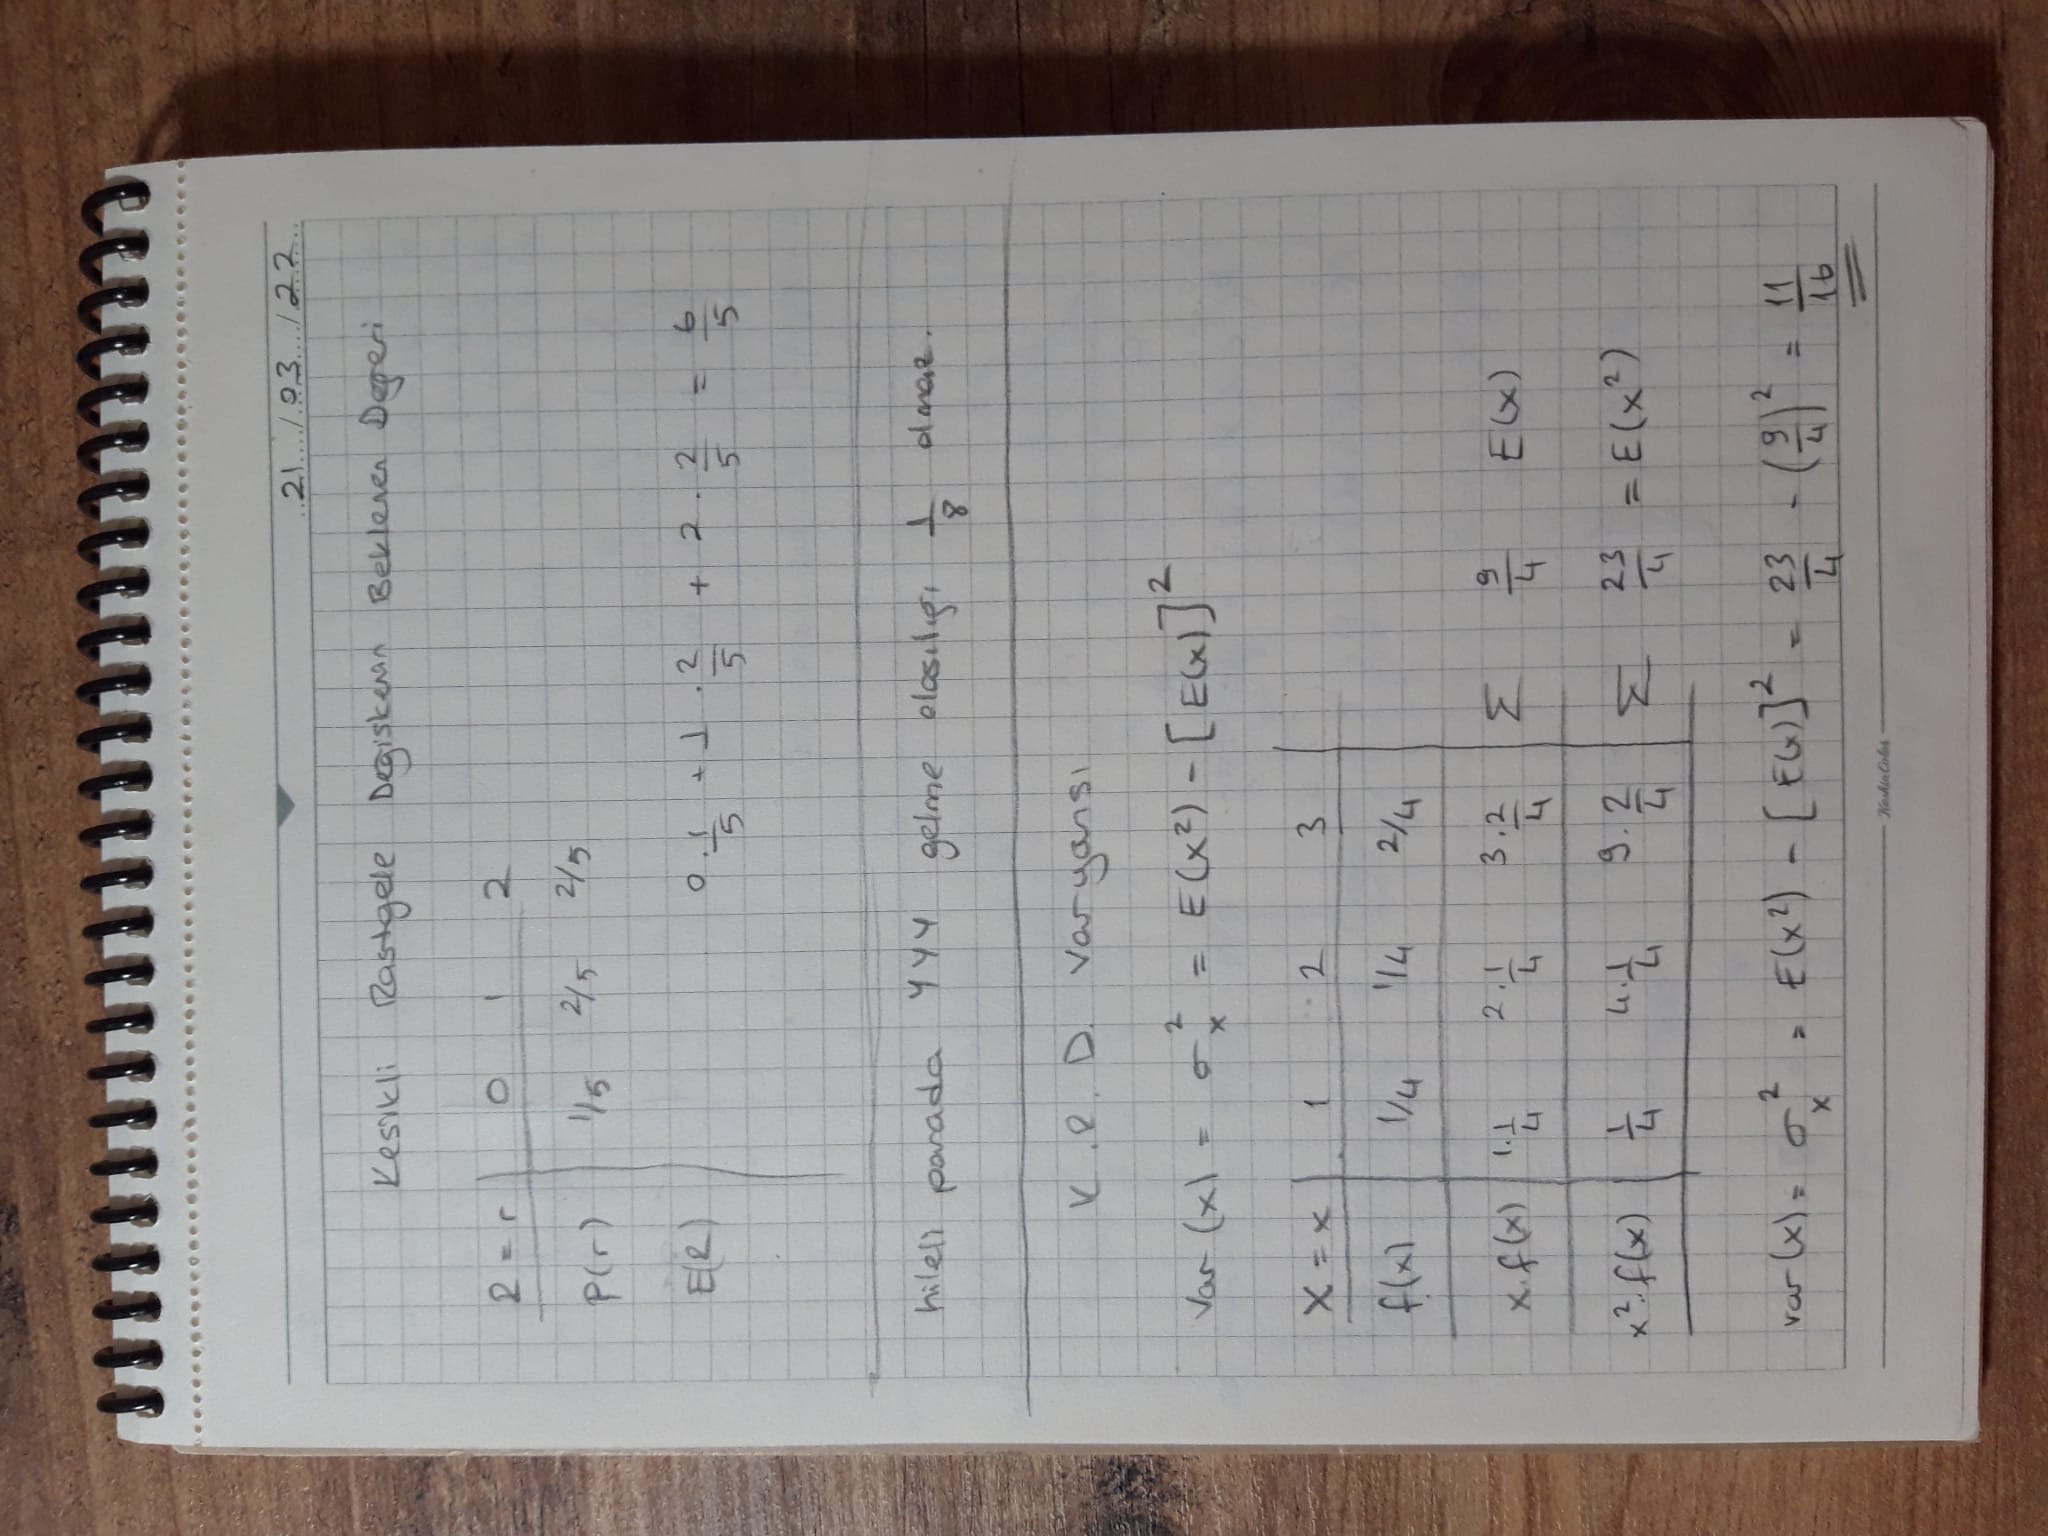 21 / 03 / 22
Kesikli Rastgele Degiskenin Beklenen Değeri
R = r 0 1 2
P(r) 1/5 2/5 2/5
E(R) 0 . 1/5 + 1 . 2/5 + 2 . 2/5 = 6/5
hileli parada YYY gelme olasılığı 1/8 olmaz.
K . R . D. Varyansı
Var (x) = σ²ₓ = E(x²) - [E(x)]²
X = x 1 2 3
f(x) 1/4 1/4 2/4
x.f(x) 1.1/4 2.1/4 3.2/4 Σ 9/4 E(x)
x².f(x) 1/4 4.1/4 9.2/4 Σ 23/4 = E(x²)
var (x) = σ²ₓ = E(x²) - [E(x)]² = 23/4 - (9/4)² = 11/16
KeskinColor